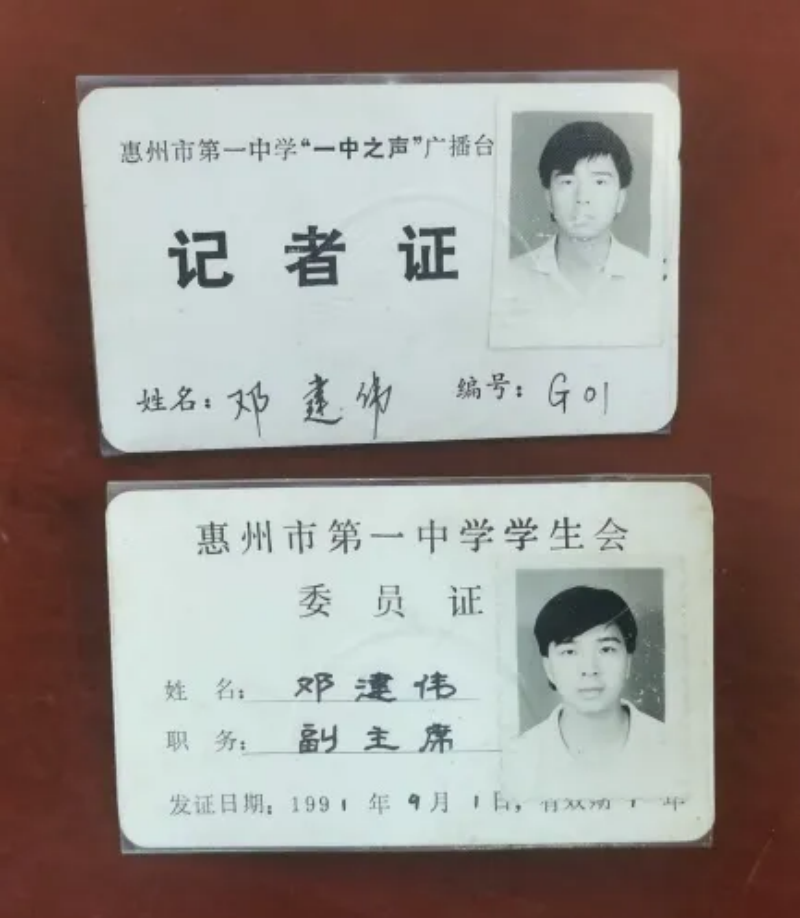 惠州市第一中学“一中之声”广播台
记者证
姓名：邓建伟 编号：G01
惠州市第一中学学生会
委员证
姓名：邓建伟
职务：副主席
发证日期：1991年9月1日，有效期1年